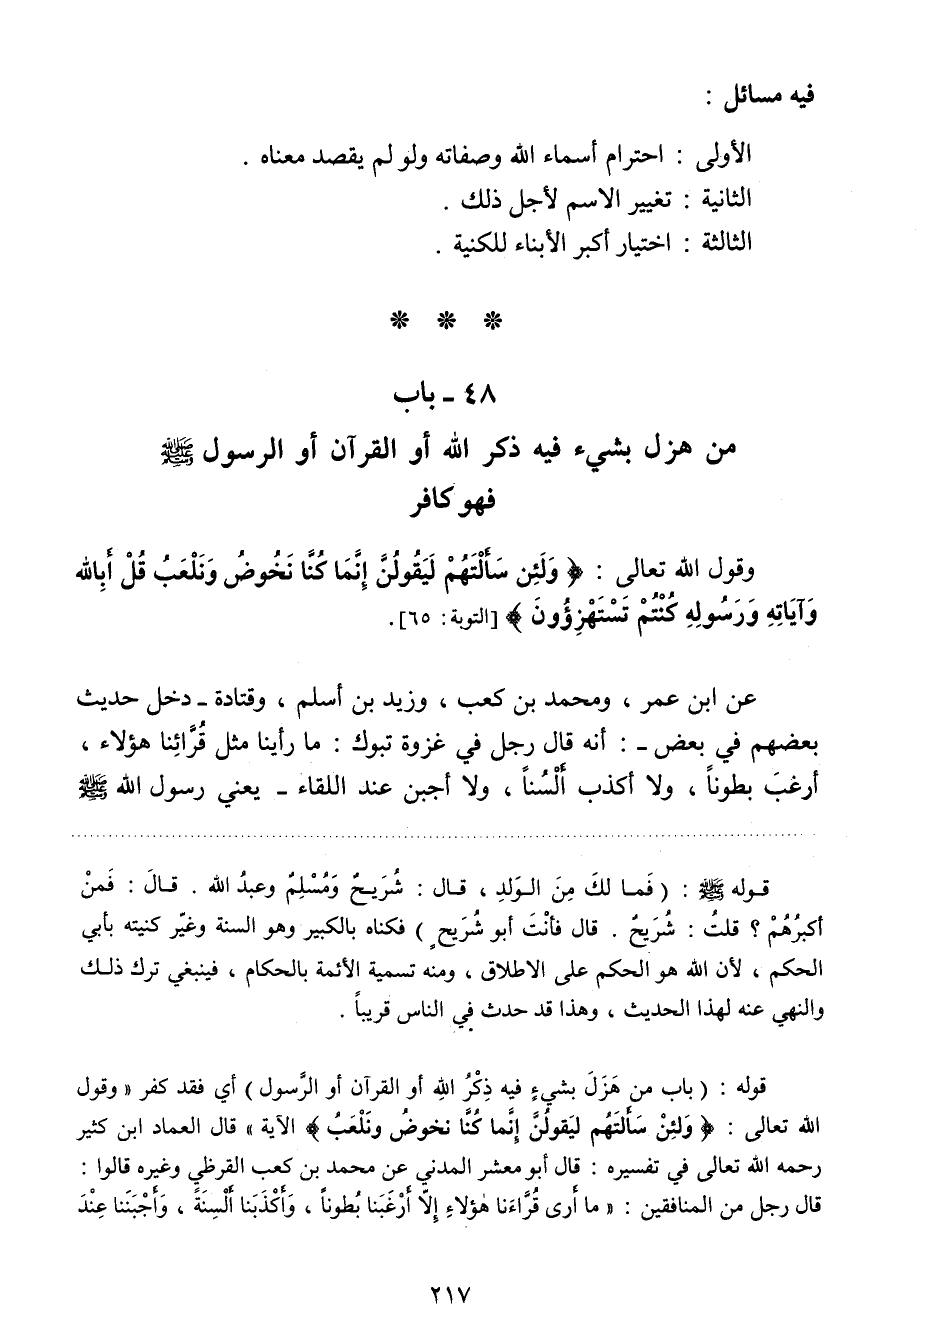 فيه مسائل :
الأولى : احترام أسماء الله وصفاته ولو لم يقصد معناه .
الثانية : تغيير الاسم لأجل ذلك .
الثالثة : اختيار أكبر الأبناء للكنية .
* * *
٤٨ ـ باب
من هزل بشيء فيه ذكر الله أو القرآن أو الرسول ﷺ
فهو كافر
وقول الله تعالى : ﴿ وَلَئِن سَأَلْتَهُمْ لَيَقُولُنَّ إِنَّمَا كُنَّا نَخُوضُ وَنَلْعَبُ قُلْ أَبِالله
وَآيَاتِهِ وَرَسُولِهِ كُنْتُمْ تَسْتَهْزِؤُونَ ﴾ [التوبة: ٦٥].
عن ابن عمر ، ومحمد بن كعب ، وزيد بن أسلم ، وقتادة ـ دخل حديث
بعضهم في بعض ـ : أنه قال رجل في غزوة تبوك : ما رأينا مثل قُرَّائِنا هؤلاء ،
أرغبَ بطوناً ، ولا أكذب أَلْسُناً ، ولا أجبن عند اللقاء ـ يعني رسول الله ﷺ
قوله ﷺ : ( فَما لكَ مِنَ الوَلدِ ، قال : شُرَيحٌ وَمُسْلِمٌ وعبدُ الله . قالَ : فَمنْ
أكبرُهُمْ ؟ قلتُ : شُرَيحٌ . قال فأنْتَ أبو شُرَيحٍ ) فكناه بالكبير وهو السنة وغيّر كنيته بأبي
الحكم ، لأن الله هو الحكم على الاطلاق ، ومنه تسمية الأئمة بالحكام ، فينبغي ترك ذلك
والنهي عنه لهذا الحديث ، وهذا قد حدث في الناس قريباً .
قوله : ( باب من هَزَلَ بشيءٍ فيه ذِكْرُ اللهِ أو القرآن أو الرَّسول ) أي فقد كفر « وقول
الله تعالى : ﴿ وَلَئِنْ سَأَلتَهُم لَيَقولُنَّ إِنَّما كُنَّا نخوضُ ونَلْعَبُ ﴾ الآية » قال العماد ابن كثير
رحمه الله تعالى في تفسيره : قال أبو معشر المدني عن محمد بن كعب القرظي وغيره قالوا :
قال رجل من المنافقين : « ما أرى قُرَّاءَنا هٰؤلاءِ إلّا أَرْغَبَنا بُطوناً ، وَأَكْذَبَنا أَلْسِنَةً ، وَأَجْبَنَنا عِنْدَ
٢١٧